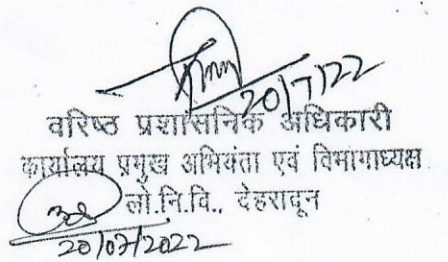 20/7/22
वरिष्ठ प्रशासनिक अधिकारी
कार्यालय प्रमुख अभियंता एवं विभागाध्यक्ष
लो.नि.वि., देहरादून
20/07/2022